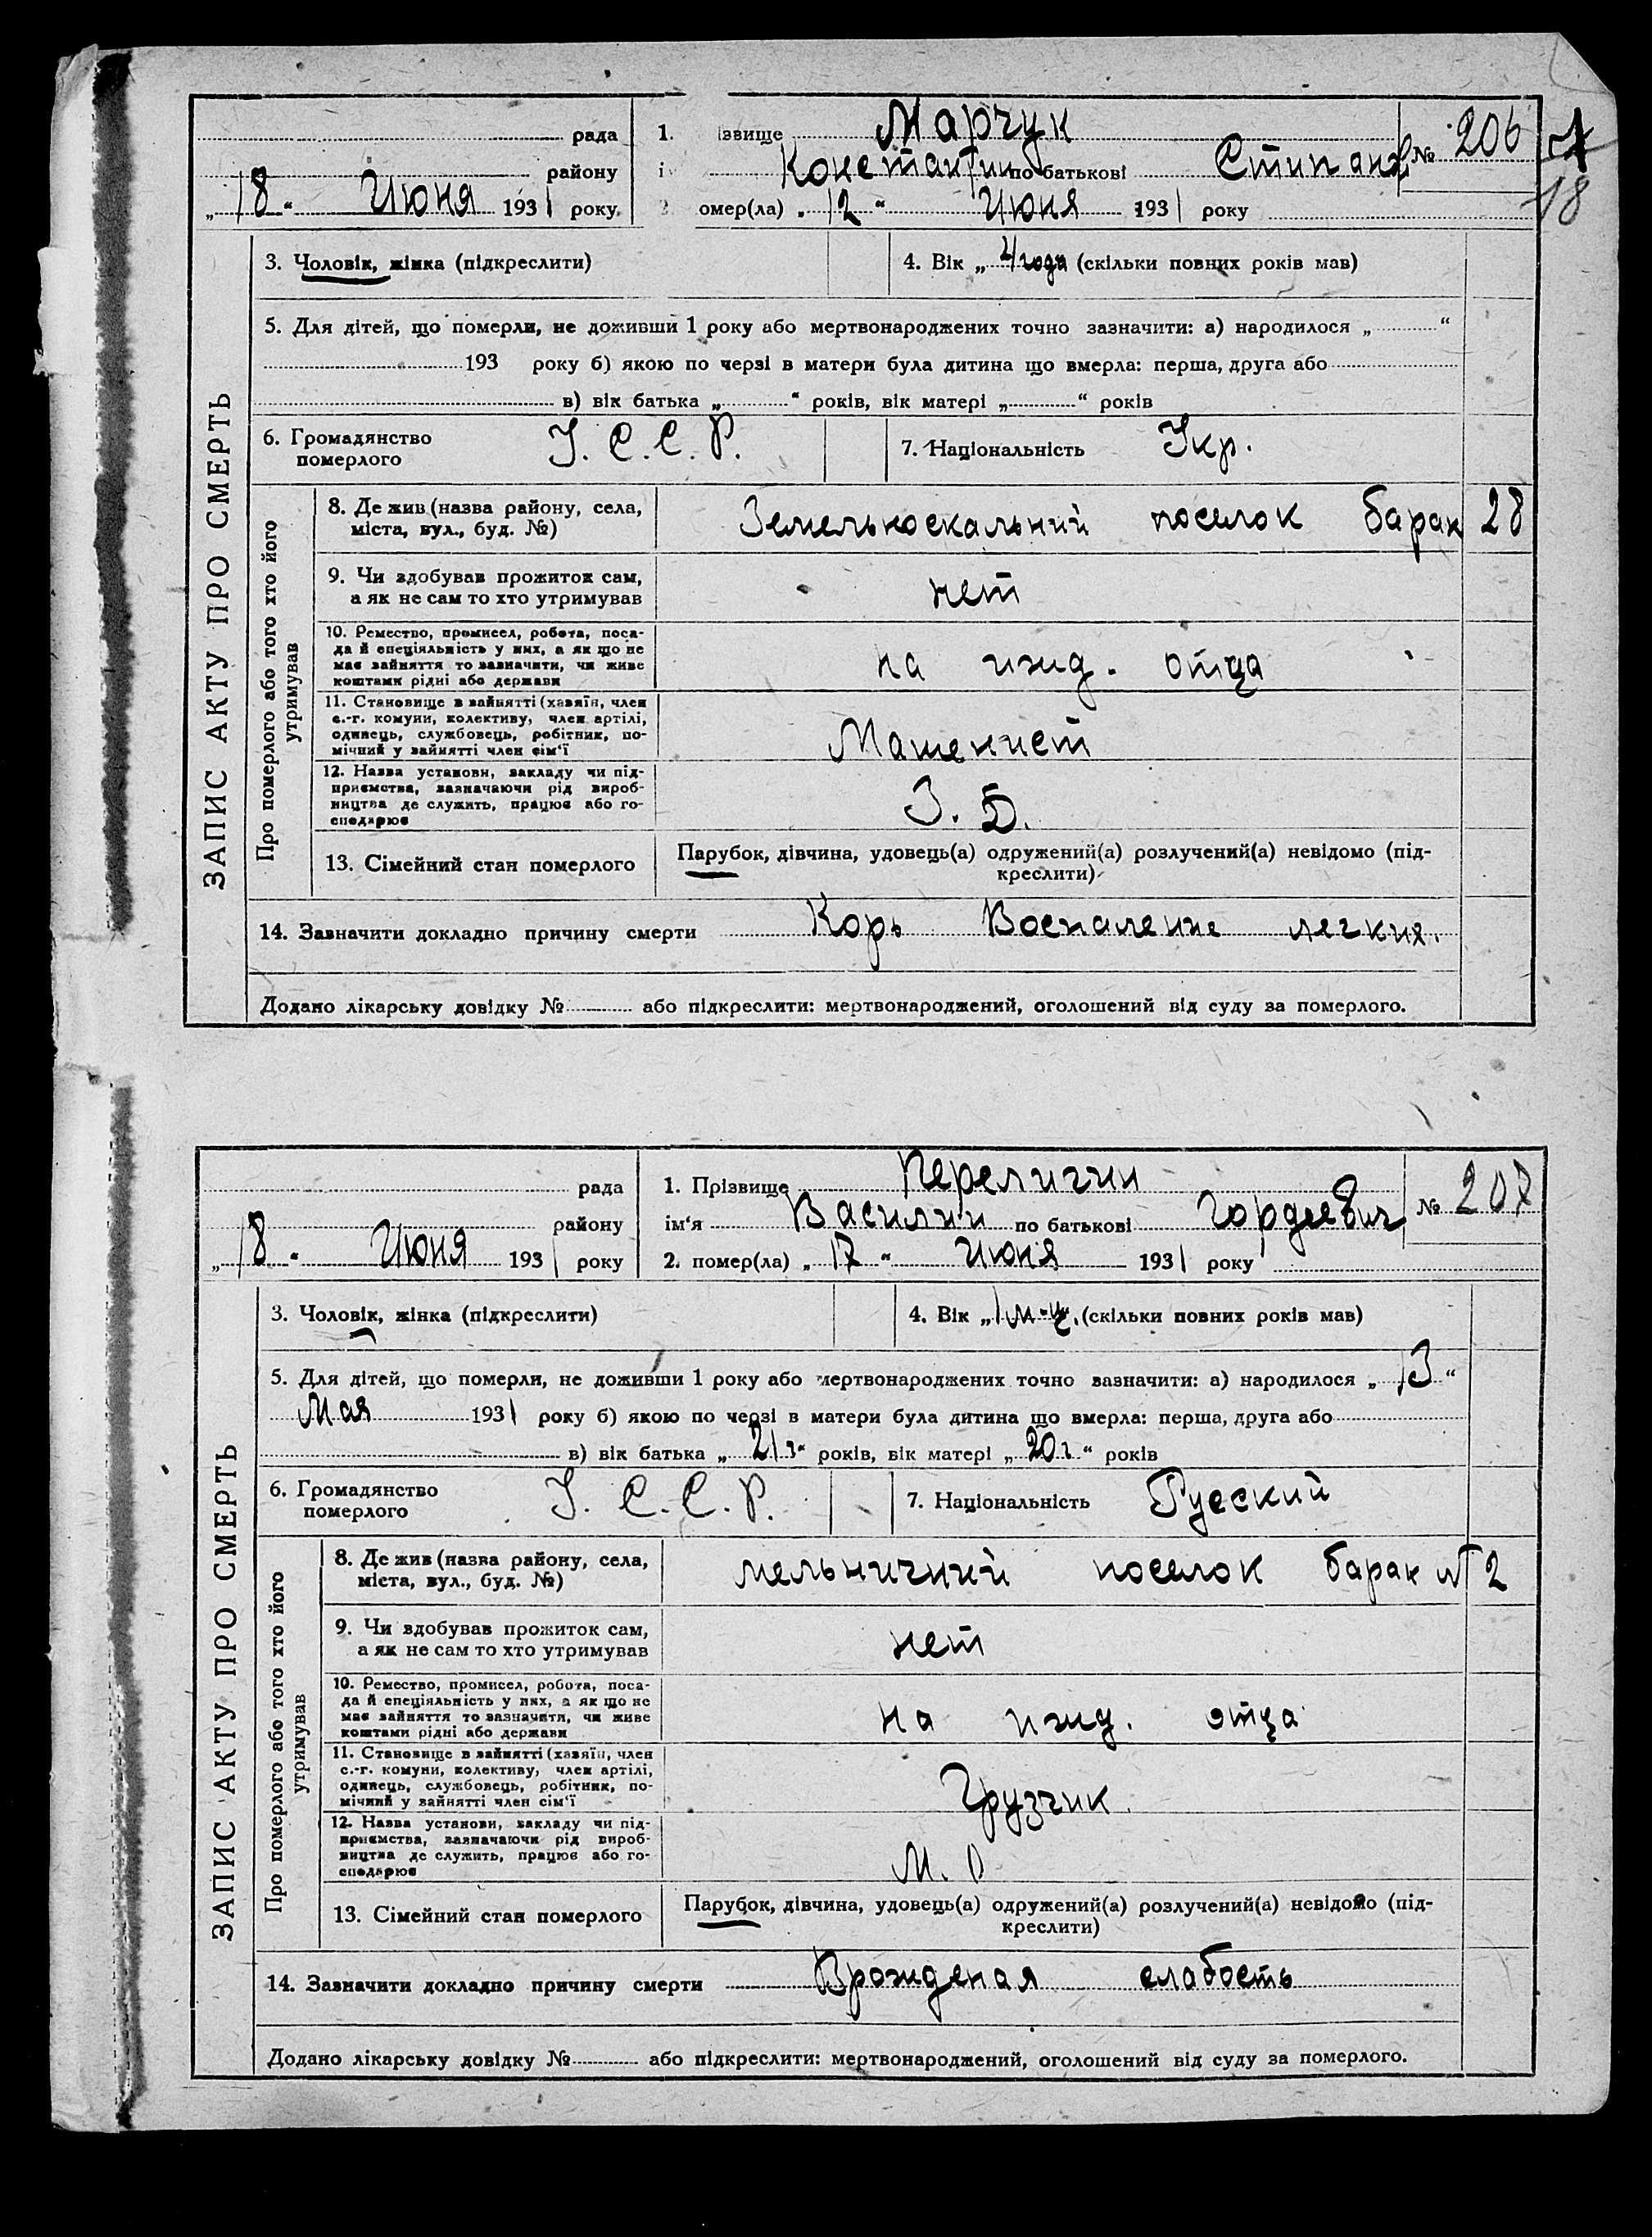 рада
району
„ 18 “ Июня 1931 року
1. ізвище Марчук № 206
Константин по батькові Стипан
омер(ла) „ 12 “ Июня 1931 року
18
ЗАПИС АКТУ ПРО СМЕРТЬ
3. Чоловік, жінка (підкреслити)
4. Вік „ 4 года (скільки повних років мав)
5. Для дітей, що померли, не доживши 1 року або мертвонароджених точно зазначити: а) народилося „ “
193 року б) якою по черзі в матери була дитина що вмерла: перша, друга або
в) вік батька „ “ років, вік матері „ “ років
6. Громадянство
померлого
У. С. С. Р.
7. Національність Укр.
Про померлого або того хто його
утримував
8. Де жив (назва району, села,
міста, вул., буд. №)
Земельноскальний поселок барак 28
9. Чи здобував прожиток сам,
а як не сам то хто утримував
нет
10. Ремество, промисел, робота, поса-
да й спеціяльність у них, а як що не
має зайняття то зазначити, чи живе
коштами рідні або держави
на ижд. отца
11. Становище в зайнятті (хазяїн, член
с.-г. комуни, колективу, член артілі,
одинець, службовець, робітник, по-
мічний у зайнятті член сім'ї
Машенист
12. Назва установи, закладу чи під-
приємства, зазначаючи рід вироб-
ництва де служить, працює або го-
сподарює
З. Б.
13. Сімейний стан померлого
Парубок, дівчина, удовець(а) одружений(а) розлучений(а) невідомо (під-
креслити)
14. Зазначити докладно причину смерти Корь Воспаление легкия.
Додано лікарську довідку № або підкреслити: мертвонароджений, оголошений від суду за померлого.
рада
району
„ 18 “ Июня 1931 року
1. Прізвище Перелигин № 207
ім'я Василий по батькові Гордеевич
2. помер(ла) „ 17 “ Июня 1931 року
ЗАПИС АКТУ ПРО СМЕРТЬ
3. Чоловік, жінка (підкреслити)
4. Вік „ 1 м-ц. (скільки повних років мав)
5. Для дітей, що померли, не доживши 1 року або мертвонароджених точно зазначити: а) народилося „ 13 “
Мая 1931 року б) якою по черзі в матери була дитина що вмерла: перша, друга або
в) вік батька „ 21 г. “ років, вік матері „ 20 г. “ років
6. Громадянство
померлого
У. С. С. Р.
7. Національність Русский
Про померлого або того хто його
утримував
8. Де жив (назва району, села,
міста, вул., буд. №)
мельничний поселок барак № 2
9. Чи здобував прожиток сам,
а як не сам то хто утримував
нет
10. Ремество, промисел, робота, поса-
да й спеціяльність у них, а як що не
має зайняття то зазначити, чи живе
коштами рідні або держави
на ижд. отца
11. Становище в зайнятті (хазяїн, член
с.-г. комуни, колективу, член артілі,
одинець, службовець, робітник, по-
мічний у зайнятті член сім'ї
Грузчик
12. Назва установи, закладу чи під-
приємства, зазначаючи рід вироб-
ництва де служить, працює або го-
сподарює
М. О
13. Сімейний стан померлого
Парубок, дівчина, удовець(а) одружений(а) розлучений(а) невідомо (під-
креслити)
14. Зазначити докладно причину смерти Врожденая слабость
Додано лікарську довідку № або підкреслити: мертвонароджений, оголошений від суду за померлого.